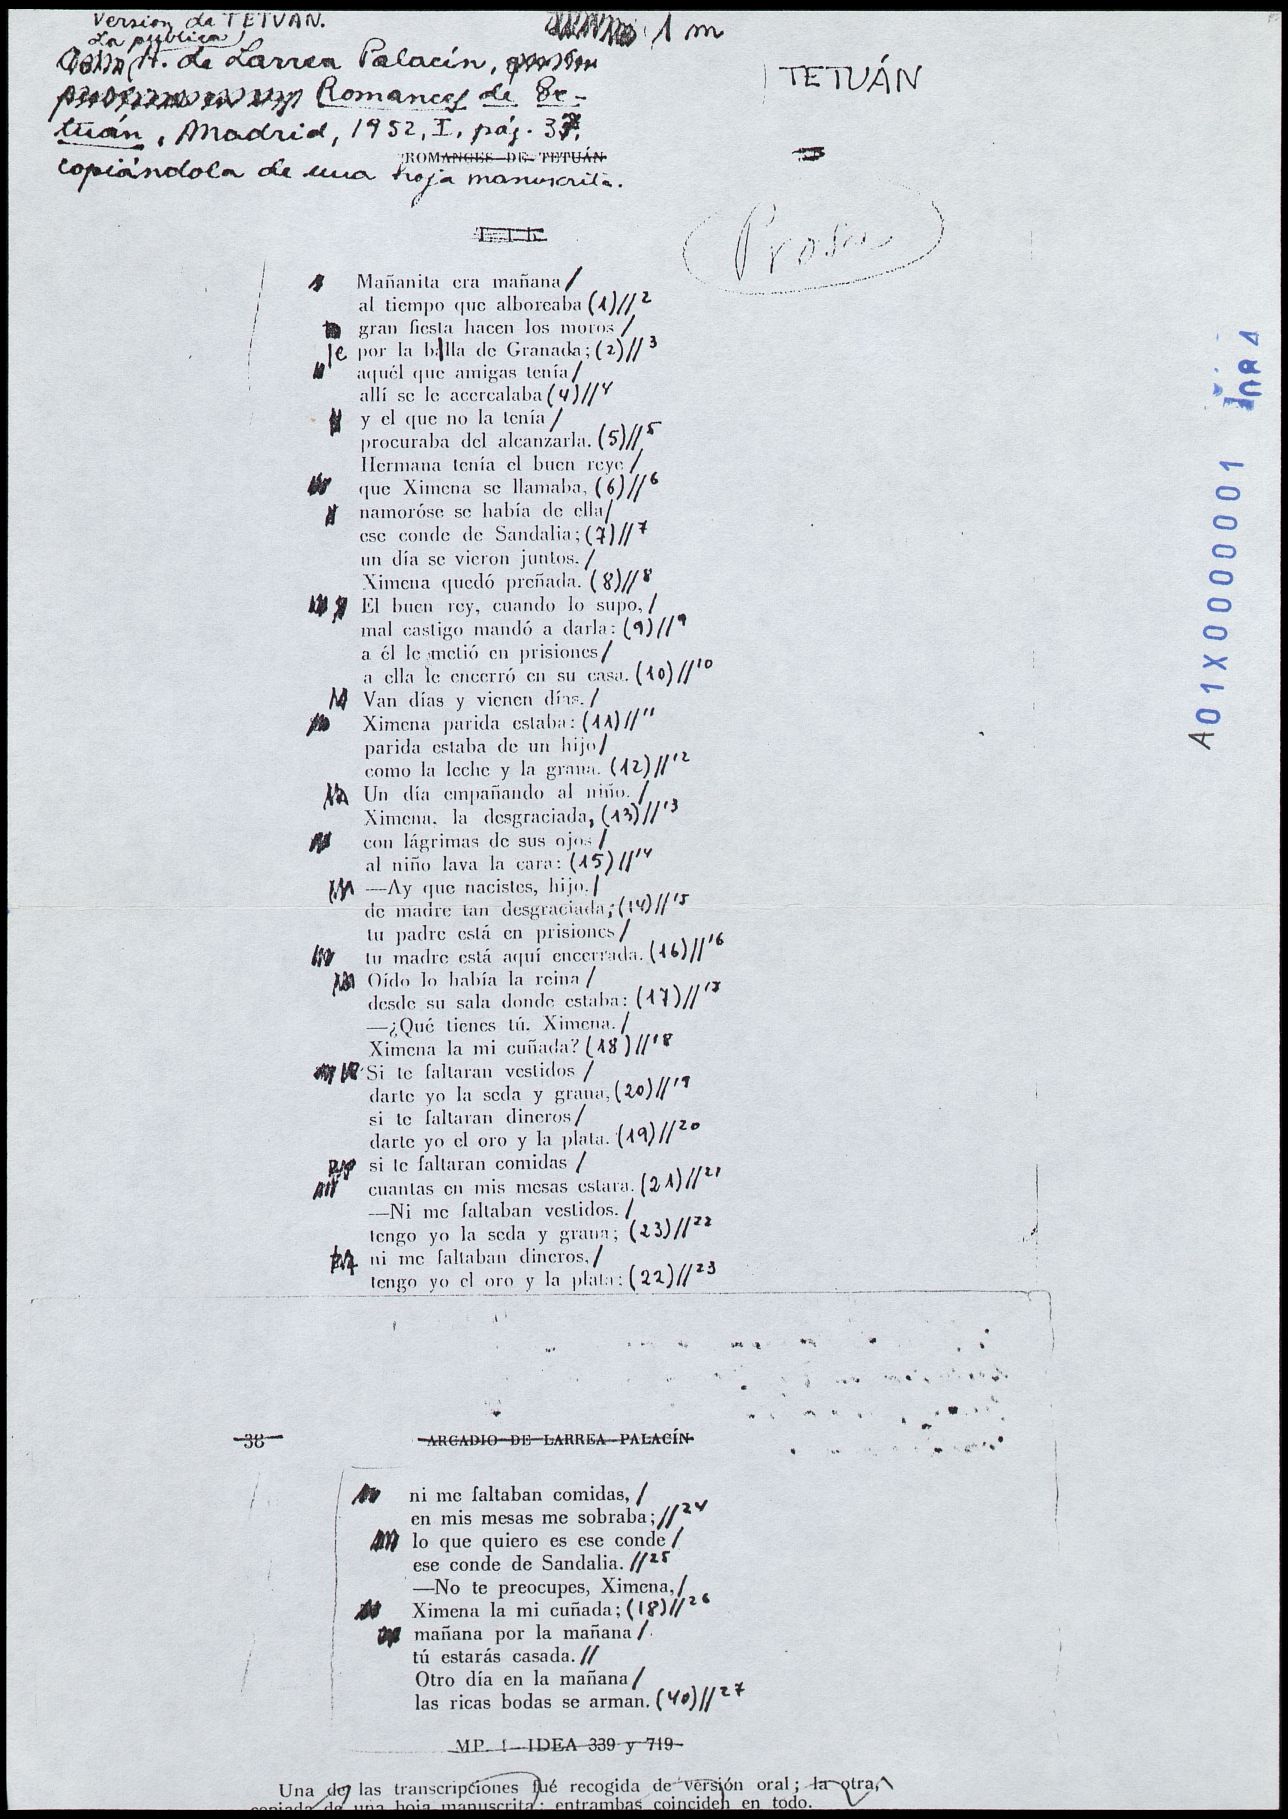 Version de TETUAN.
La publica
A. de Larrea Palacín,
Romances de Te-
tuán, Madrid, 1952, I, pág. 37,
copiándola de una hoja manuscrita.
1 m
TETUÁN
ROMANCES DE TETUÁN
Prosa
Mañanita era mañana /
al tiempo que alboreaba (1)//2
gran fiesta hacen los moros /
je por la balla de Granada; (2)//3
aquél que amigas tenía /
allí se le acercalaba (4)//4
y el que no la tenía /
procuraba del alcanzarla. (5)//5
Hermana tenía el buen reye /
que Ximena se llamaba, (6)//6
namoróse se había de ella/
ese conde de Sandalia; (7)//7
un día se vieron juntos. /
Ximena quedó preñada. (8)//8
El buen rey, cuando lo supo, /
mal castigo mandó a darla: (9)//9
a él le metió en prisiones/
a ella le encerró en su casa. (10)//10
Van días y vienen días. /
Ximena parida estaba: (11)//11
parida estaba de un hijo/
como la leche y la grana. (12)//12
Un día empañando al niño. /
Ximena, la desgraciada, (13)//13
con lágrimas de sus ojos /
al niño lava la cara: (15)//14
—Ay que nacistes, hijo. /
de madre tan desgraciada; (14)//15
tu padre está en prisiones /
tu madre está aquí encerrada. (16)//16
Oído lo había la reina /
desde su sala donde estaba: (17)//17
—¿Qué tienes tú, Ximena. /
Ximena la mi cuñada? (18)//18
Si te faltaran vestidos /
darte yo la seda y grana, (20)//19
si te faltaran dineros/
darte yo el oro y la plata. (19)//20
si te faltaran comidas /
cuantas en mis mesas estara. (21)//21
—Ni me faltaban vestidos. /
tengo yo la seda y grana; (23)//22
ni me faltaban dineros, /
tengo yo el oro y la plata: (22)//23
38
ARCADIO DE LARREA PALACÍN
ni me faltaban comidas, /
en mis mesas me sobraba; //24
lo que quiero es ese conde /
ese conde de Sandalia. //25
—No te preocupes, Ximena, /
Ximena la mi cuñada; (18)//26
mañana por la mañana /
tú estarás casada. //
Otro día en la mañana /
las ricas bodas se arman. (40)//27
MP. I—IDEA 339 y 719
Una de las transcripciones fué recogida de versión oral; la otra,
copiada de una hoja manuscrita; entrambas coinciden en todo.
A01X0000001